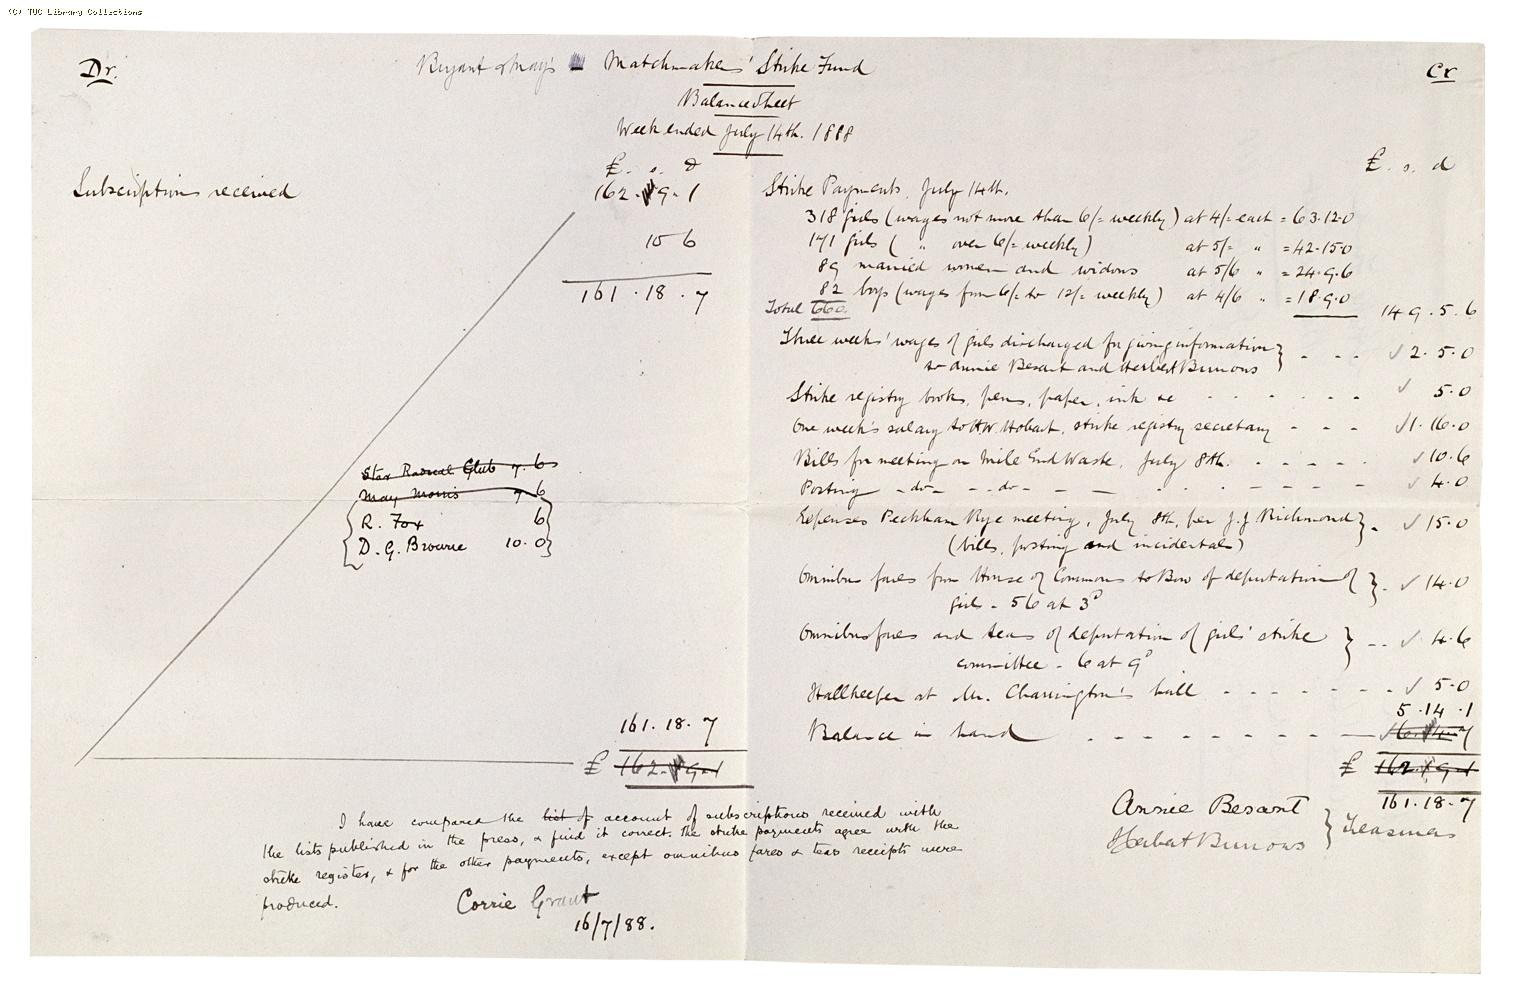 (C) TUC Library Collections
Dr.
Bryant & May's Matchmakers' Strike Fund
Cr
Balance Sheet
Week ended July 14th. 1888
£. s. d
Subscriptions received
162. 9. 1
10 6
161. 18. 7
Star Radical Club 7. 6
May Morris 7. 6
R. Fox 6
D. G. Browne 10. 0
161. 18. 7
£ 162. 9. 1
£. s. d
Strike Payments, July 14th.
318 girls (wages not more than 6/= weekly) at 4/= each = 63.12.0
171 girls ( " over 6/= weekly) at 5/= " = 42.15.0
89 married women and widows at 5/6 " = 24.9.6
82 boys (wages from 6/= to 12/= weekly) at 4/6 " = 18.9.0
Total 660. 149. 5. 6
Three weeks' wages of girls discharged for giving information
to Annie Besant and Herbert Burrows } - - - ✓ 2. 5. 0
Strike registry books, pens, paper, ink &c - - - - - - ✓ 5. 0
One week's salary to H.W. Hobart, strike registry secretary - - - ✓ 1. 16. 0
Bills for meeting on Mile End Waste, July 8th. - - - - - ✓ 10. 6
Posting -do- - -do- - - - - - - - ✓ 4. 0
Expenses Peckham Rye meeting, July 8th, per J. J Richmond
(bills, posting and incidentals) } - ✓ 15. 0
Omnibus fares from House of Commons to Bow of deputation of
girls - 56 at 3d } - ✓ 14. 0
Omnibus fares and teas of deputation of girls' strike
committee - 6 at 9d } - - ✓ 4. 6
Hallkeeper at Mr. Charrington's hall - - - - - - - ✓ 5. 0
5. 14. 1
Balance in hand - - - - - - - -
£ 162. 9. 1
161. 18. 7
Annie Besant
Herbert Burrows } Treasurers
I have compared the list of account of subscriptions received with
the lists published in the press, & find it correct. The strike payments agree with the
strike register, & for the other payments, except omnibus fares & teas receipts were
produced.
Corrie Grant
16/7/88.